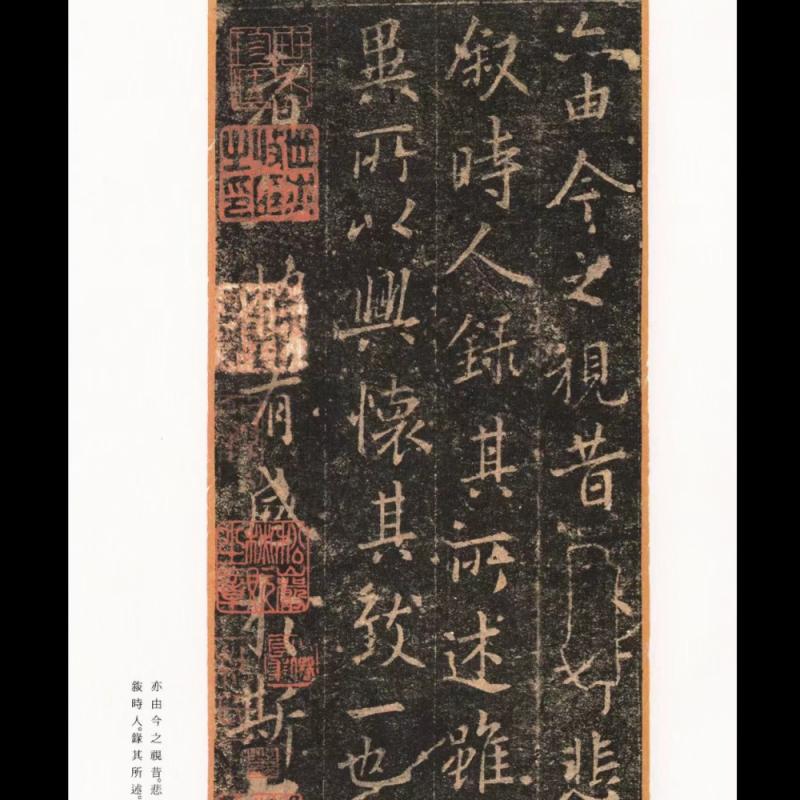 亦由今之視昔悲
叙時人錄其所述雖
異所以興懷其致一也
者有感於斯
亦由今之視昔。悲
敍時人。錄其所述。